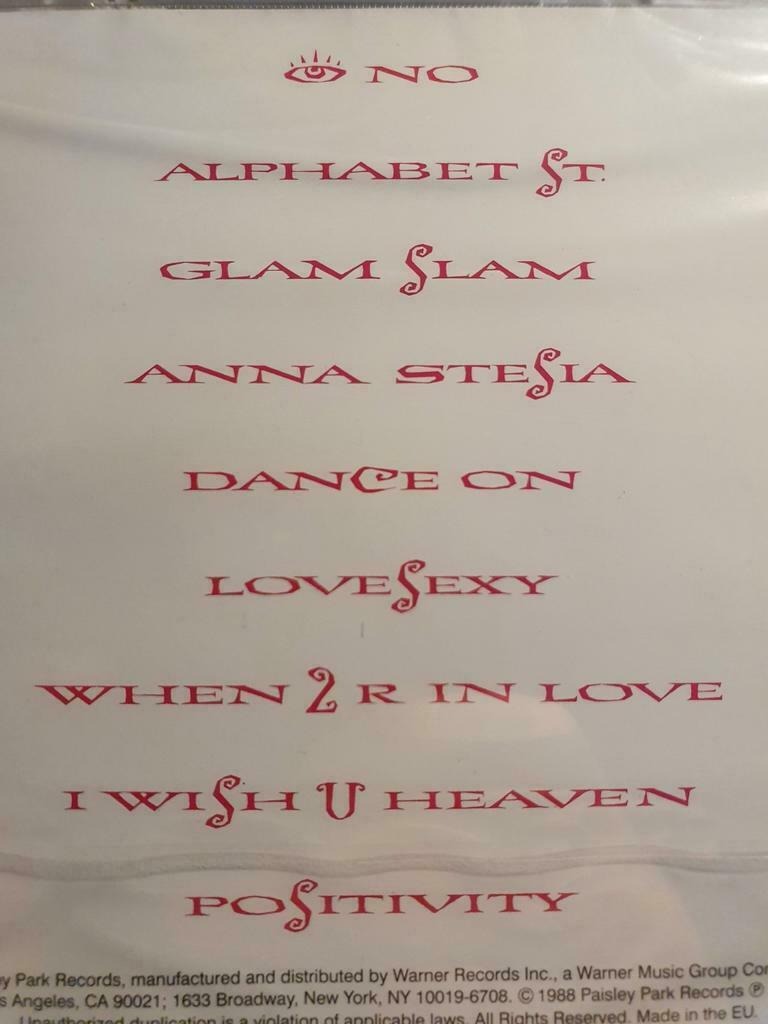 NO
ALPHABET ST.
GLAM SLAM
ANNA STESIA
DANCE ON
LOVESEXY
WHEN 2 R IN LOVE
I WISH U HEAVEN
POSITIVITY
y Park Records, manufactured and distributed by Warner Records Inc., a Warner Music Group Com
s Angeles, CA 90021; 1633 Broadway, New York, NY 10019-6708. © 1988 Paisley Park Records ℗
Unauthorized duplication is a violation of applicable laws. All Rights Reserved. Made in the EU.